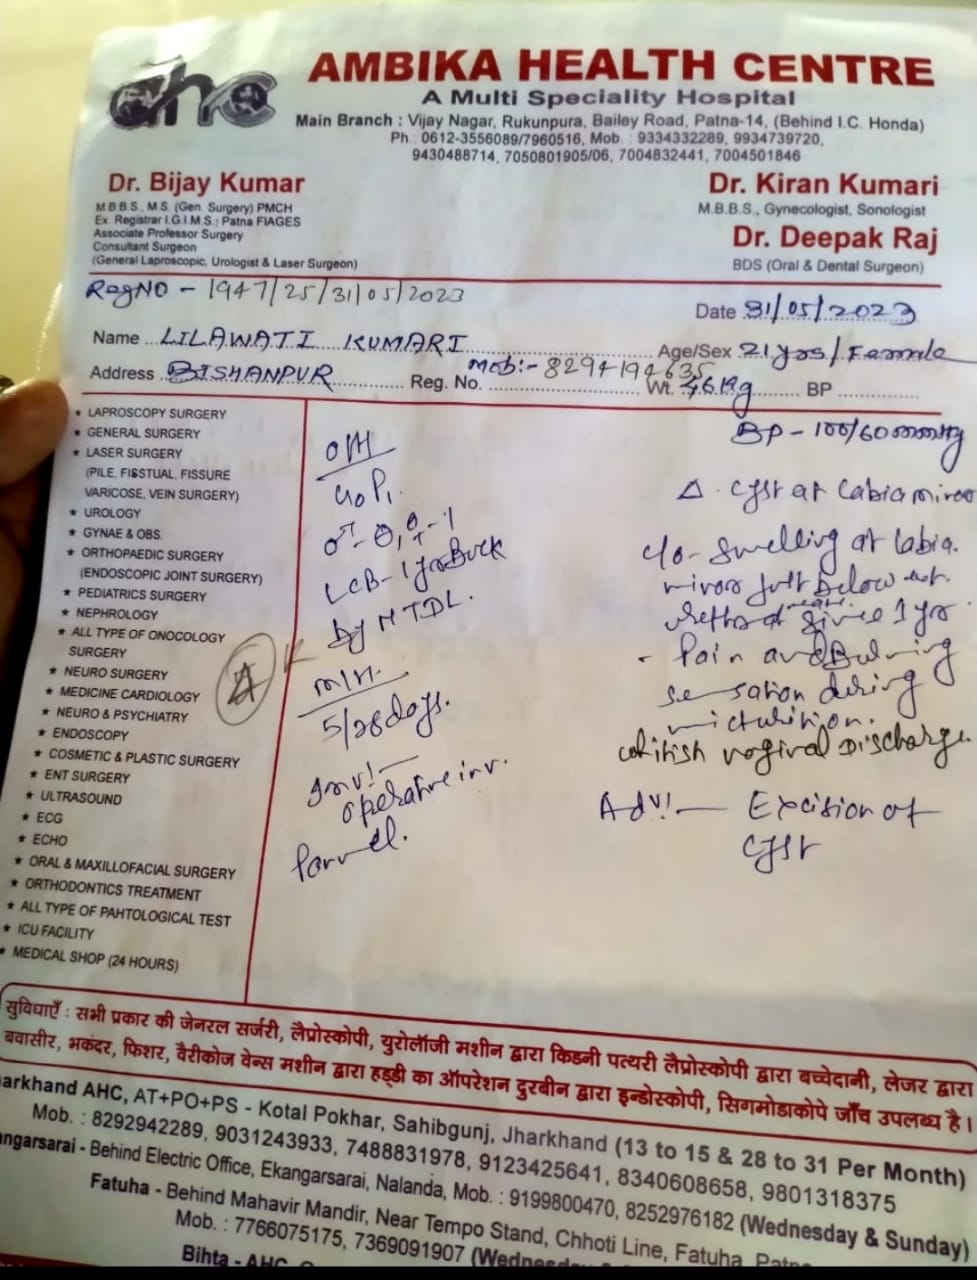 ahc
AMBIKA HEALTH CENTRE
A Multi Speciality Hospital
Main Branch : Vijay Nagar, Rukunpura, Bailey Road, Patna-14, (Behind I.C. Honda)
Ph.: 0612-3556089/7960516, Mob. : 9334332289, 9934739720,
9430488714, 7050801905/06, 7004832441, 7004501846
Dr. Bijay Kumar
M.B.B.S., M.S. (Gen. Surgery) PMCH
Ex. Registrar I.G.I.M.S.; Patna FIAGES
Associate Professor Surgery
Consultant Surgeon
(General Laproscopic, Urologist & Laser Surgeon)
Dr. Kiran Kumari
M.B.B.S., Gynecologist, Sonologist
Dr. Deepak Raj
BDS (Oral & Dental Surgeon)
RegNO - 1947/25/31/05/2023
Date 31/05/2023
Name LILAWATI KUMARI Age/Sex 21 yrs/Female
Address BISHANPUR Reg. No. Mob:- 8294194635 Wt. 46 Kg BP
★ LAPROSCOPY SURGERY
★ GENERAL SURGERY
★ LASER SURGERY
(PILE, FISSTUAL, FISSURE
VARICOSE, VEIN SURGERY)
★ UROLOGY
★ GYNAE & OBS.
★ ORTHOPAEDIC SURGERY
(ENDOSCOPIC JOINT SURGERY)
★ PEDIATRICS SURGERY
★ NEPHROLOGY
★ ALL TYPE OF ONOCOLOGY
SURGERY
★ NEURO SURGERY
★ MEDICINE CARDIOLOGY
★ NEURO & PSYCHIATRY
★ ENDOSCOPY
★ COSMETIC & PLASTIC SURGERY
★ ENT SURGERY
★ ULTRASOUND
★ ECG
★ ECHO
★ ORAL & MAXILLOFACIAL SURGERY
★ ORTHODONTICS TREATMENT
★ ALL TYPE OF PAHTOLOGICAL TEST
★ ICU FACILITY
★ MEDICAL SHOP (24 HOURS)
O/H
P1
♂-0, ♀-1
LCB- 1 yr Back
by NTDL.
M/H.
5/28 days.
Inv!—
operative inv.
BP - 100/60 mmHg
Δ. Cyst at Labia minor
c/o - Swelling at labia.
minor just below ext.
urethral since 1 yr
- Pain and Burning
sensation during
micturition.
whitish vaginal Discharge.
Adv!— Excision of
Cyst
सुविधाएँ : सभी प्रकार की जेनरल सर्जरी, लैप्रोस्कोपी, युरोलॉजी मशीन द्वारा किडनी पत्थरी लैप्रोस्कोपी द्वारा बच्चेदानी, लेजर द्वारा
बवासीर, भकंदर, फिशर, वैरीकोज वेन्स मशीन द्वारा हड्डी का ऑपरेशन दुरबीन द्वारा इन्डोस्कोपी, सिगमोडाकोपे जाँच उपलब्ध है।
arkhand AHC, AT+PO+PS - Kotal Pokhar, Sahibgunj, Jharkhand (13 to 15 & 28 to 31 Per Month)
Mob. : 8292942289, 9031243933, 7488831978, 9123425641, 8340608658, 9801318375
angarsarai - Behind Electric Office, Ekangarsarai, Nalanda, Mob. : 9199800470, 8252976182 (Wednesday & Sunday)
Fatuha - Behind Mahavir Mandir, Near Tempo Stand, Chhoti Line, Fatuha, Patna
Mob. : 7766075175, 7369091907 (Wednesday &
Bihta - AHC